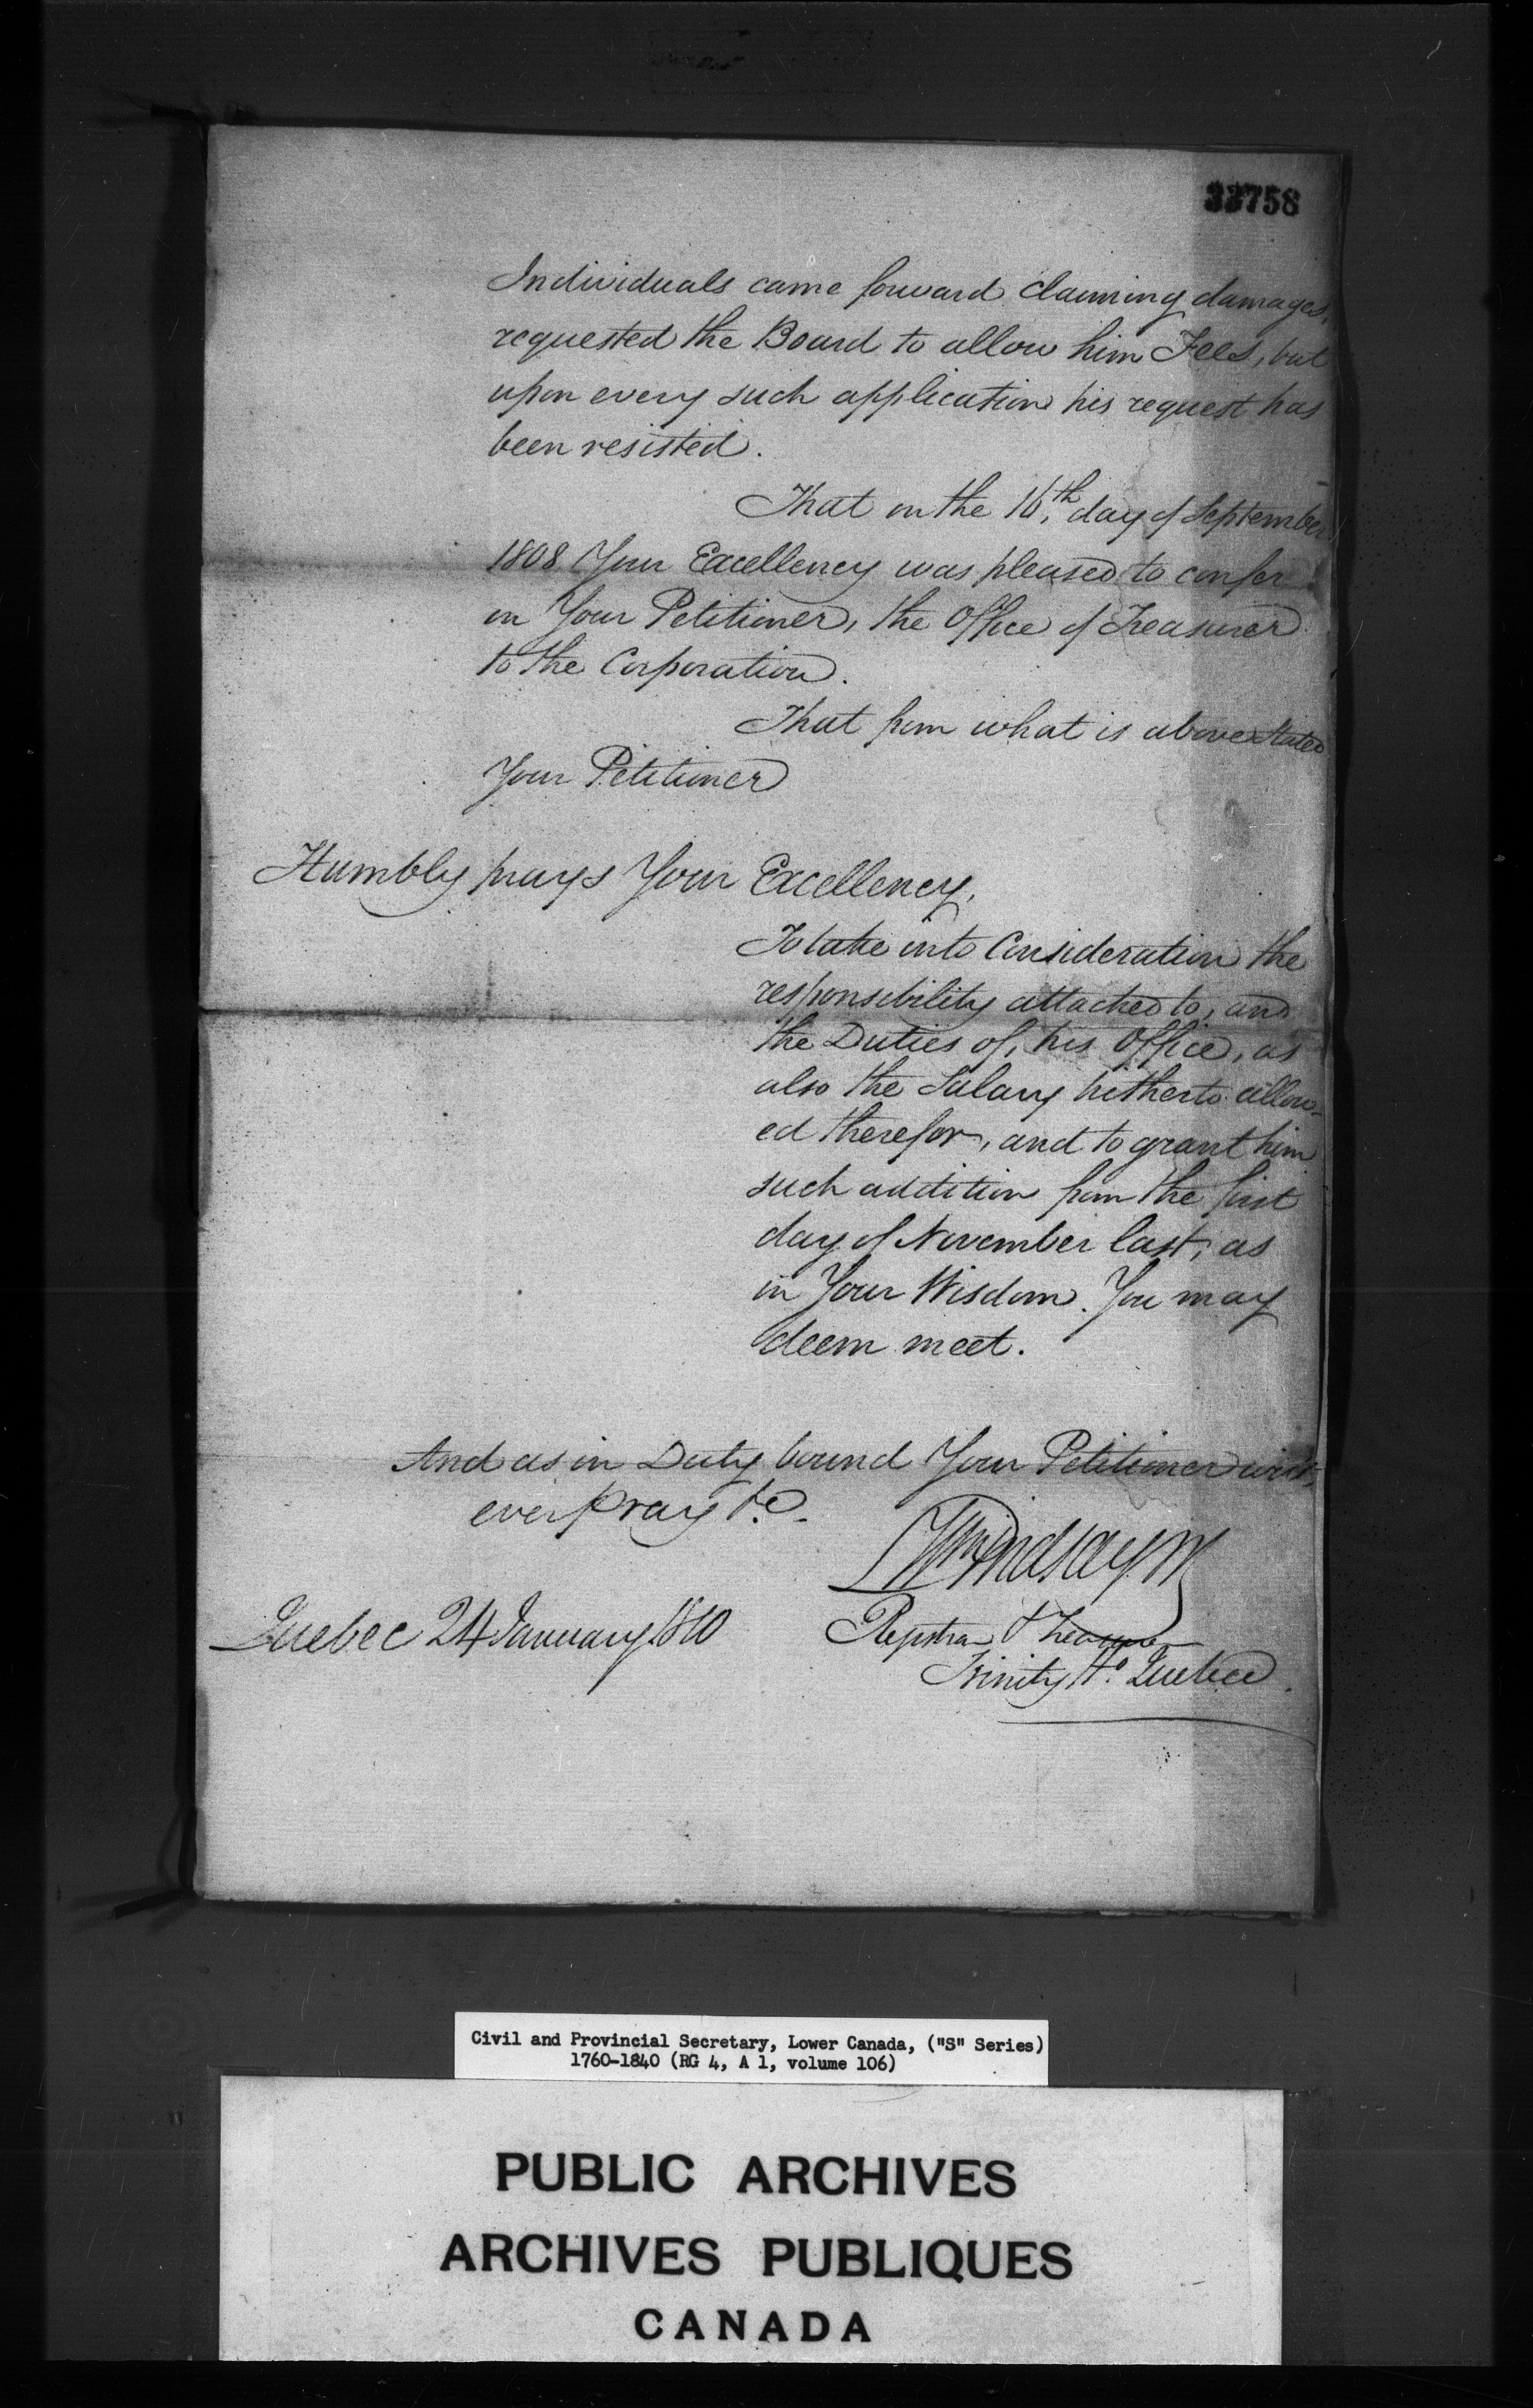 33758
Individuals came forward claiming damages,
requested the Board to allow him Fees, but
upon every such application his request has
been resisted.
That on the 16th, day of September
1808 Your Excellency was pleased to confer
on Your Petitioner, the Office of Treasurer
to the Corporation.
That from what is above stated
Your Petitioner
Humbly prays Your Excellency,
To take into Consideration the
responsibility attached to, and
the Duties of, his Office, as
also the Salary hitherto allow-
ed therefor, and to grant him
such addition from the first
day of November last, as
in Your Wisdom You may
deem meet.
And as in Duty bound Your Petitioner will,
ever pray &c.
Wm Lindsay Jr
Quebec 24 January 1810
Registrar & Treasurer
Trinity Ho. Quebec.
Civil and Provincial Secretary, Lower Canada, ("S" Series)
1760-1840 (RG 4, A 1, volume 106)
PUBLIC ARCHIVES
ARCHIVES PUBLIQUES
CANADA